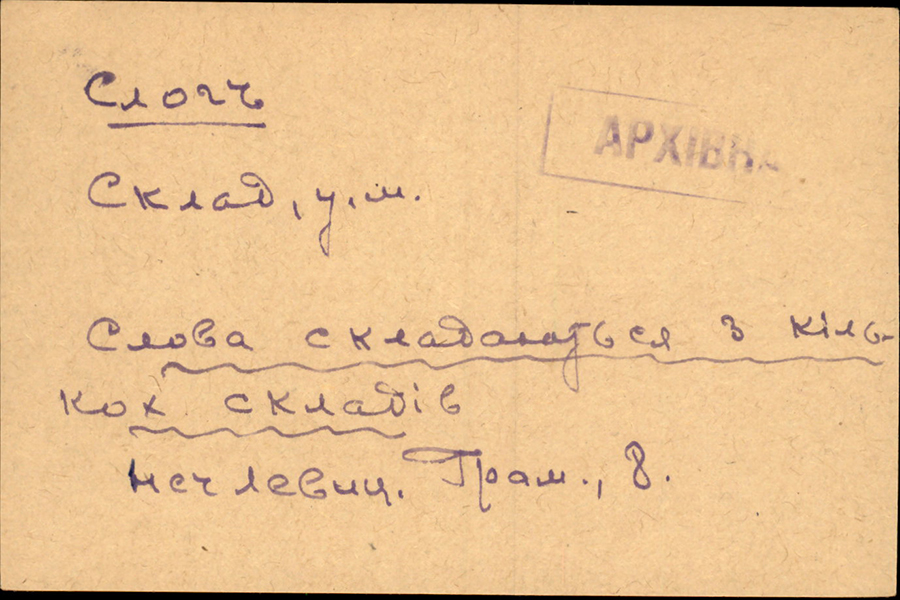 Слогъ
АРХІВНА
Склад, у, м.
Слова складаються з кіль-
кох складів
Нечлевиц. Грам., 8.